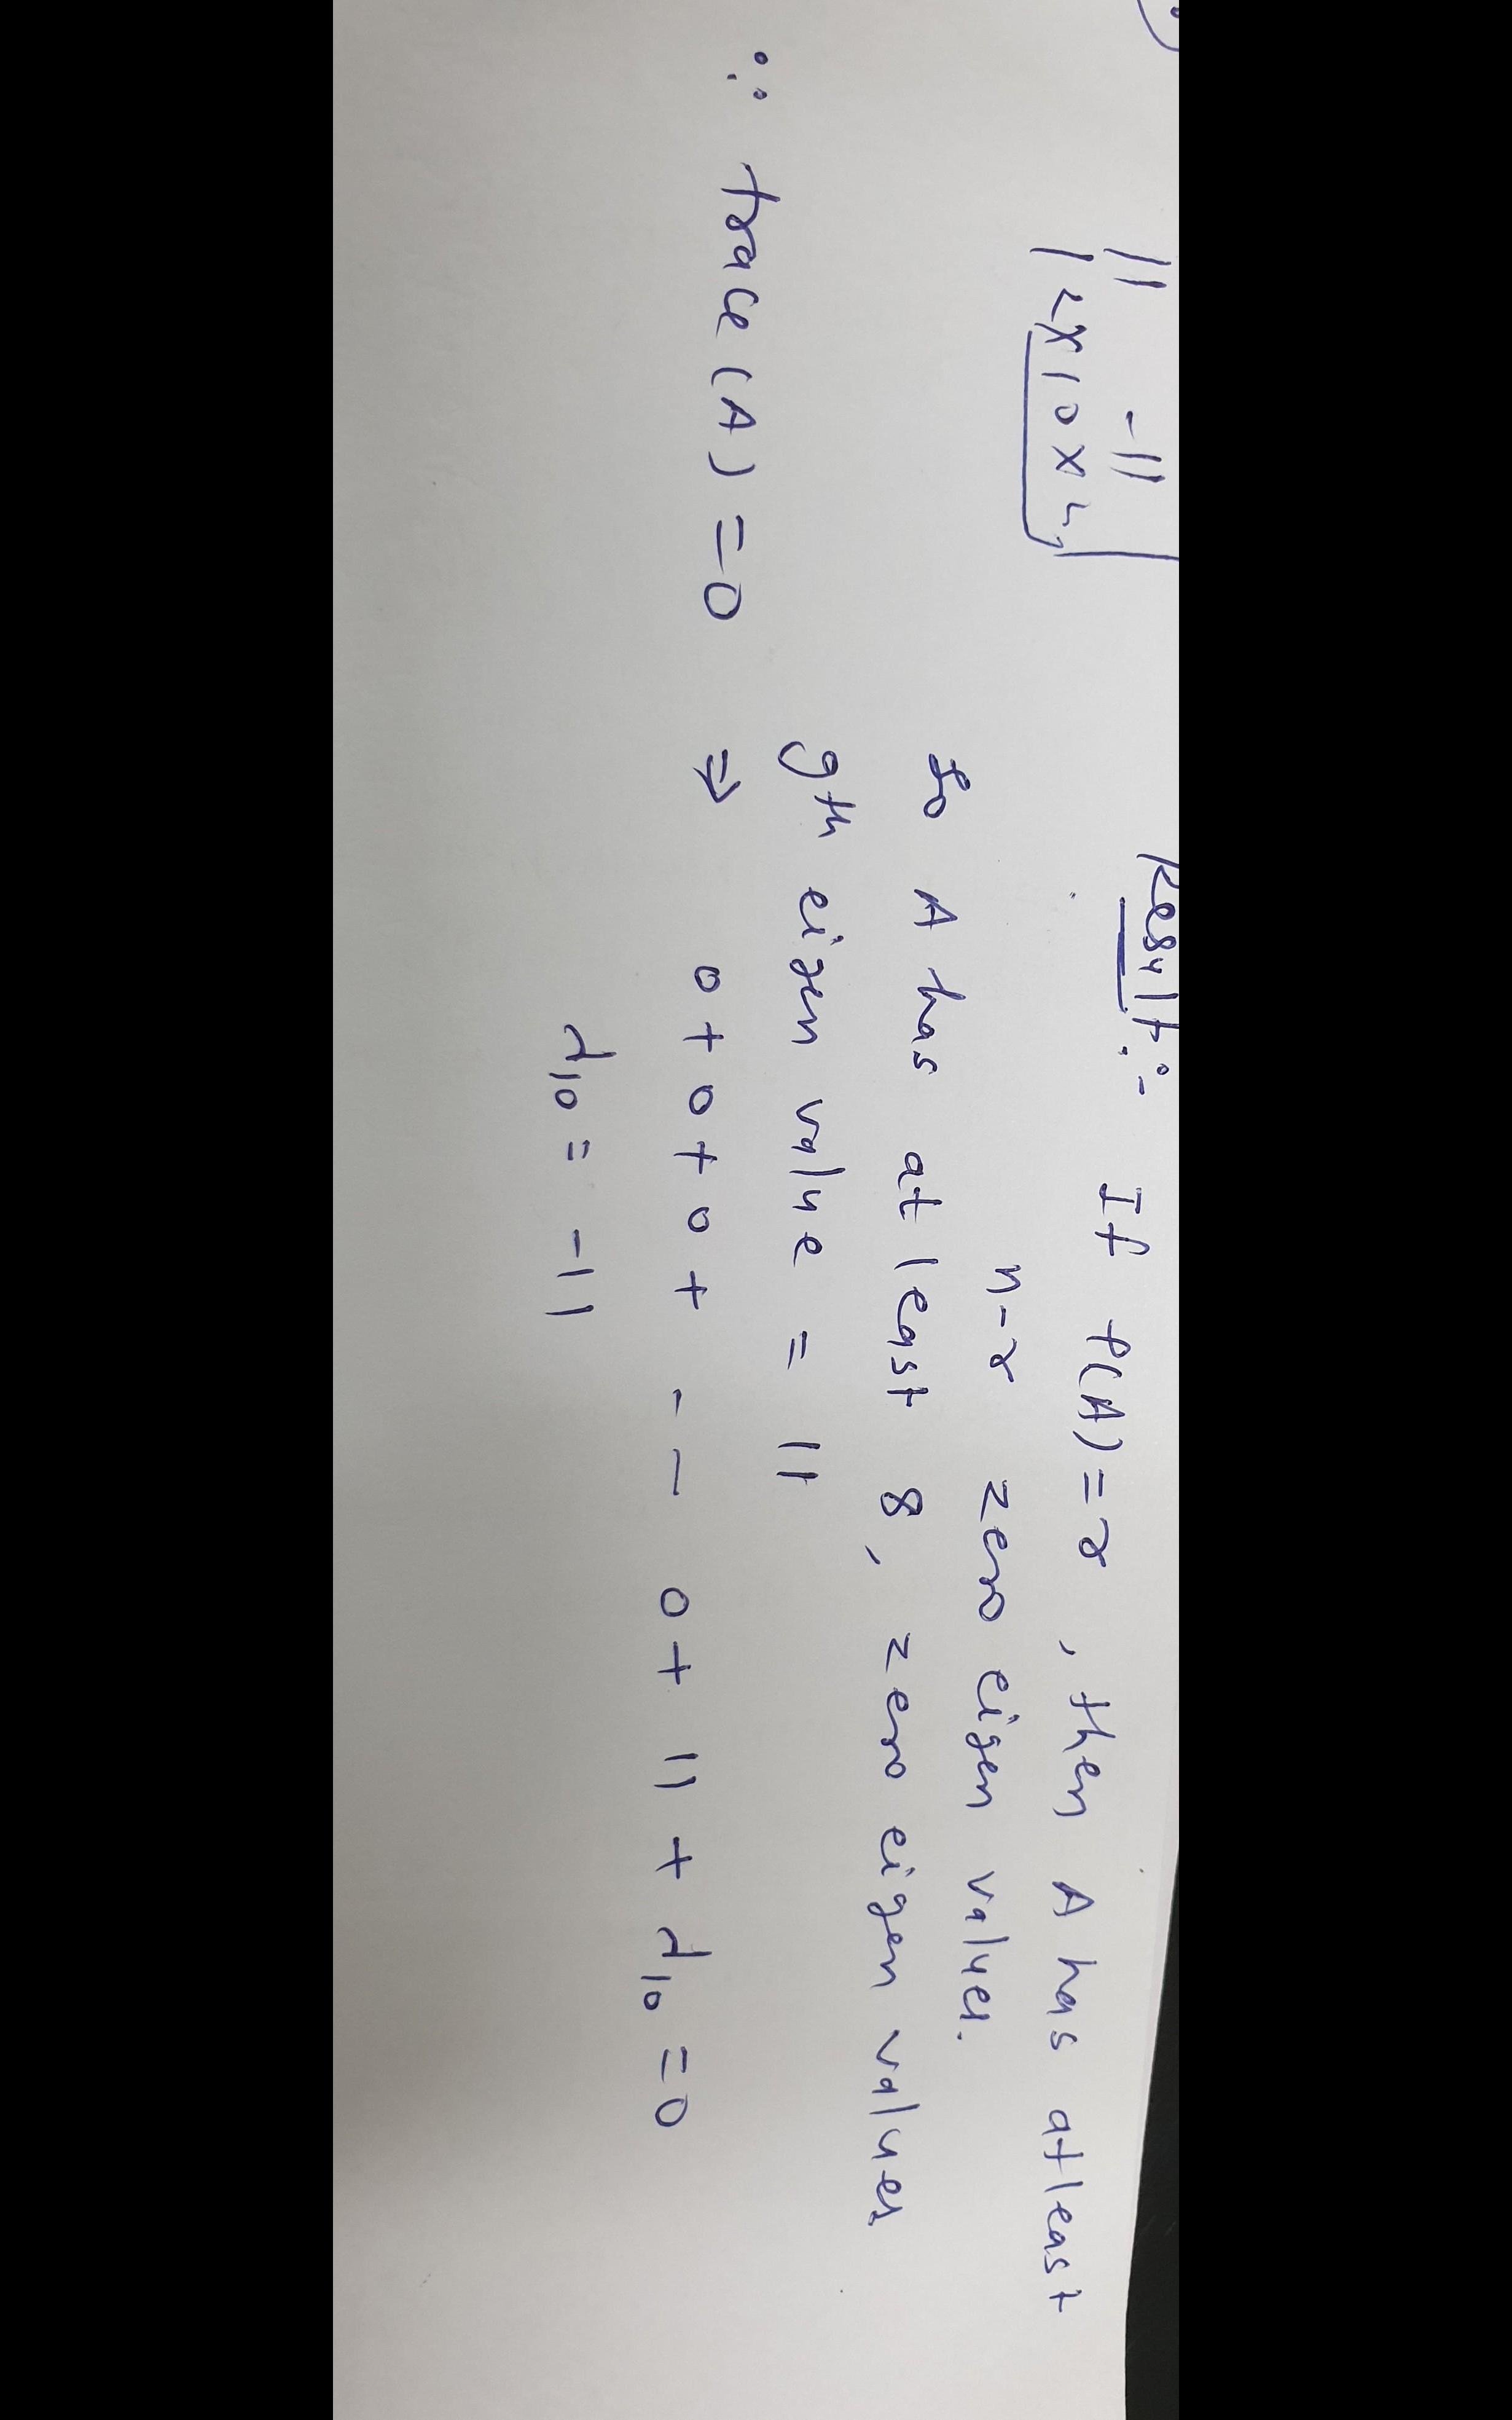 11 -11
Result:-
If ρ(A)=r, then A has atleast
n-r zero eigen values.
So A has at least 8, zero eigen values
9th eigen value = 11
∵ trace(A)=0 ⇒ 0+0+0+ - - 0+11+λ10=0
λ10 = -11